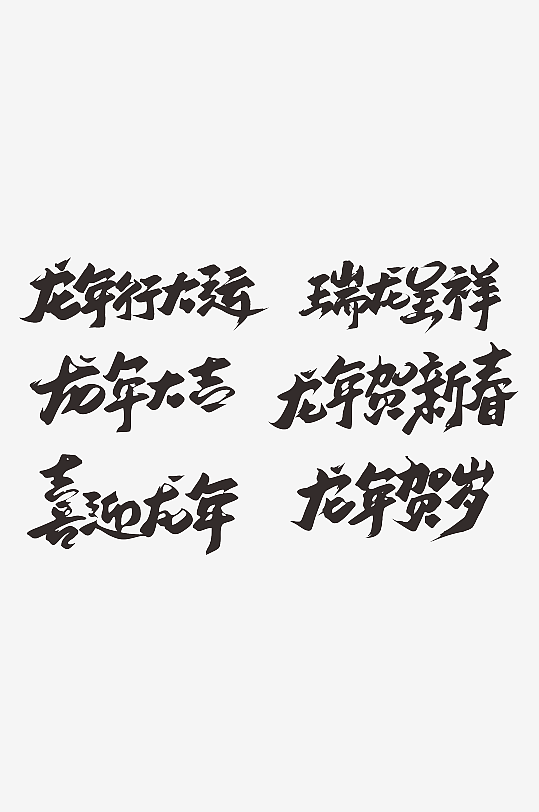 龙年行大运
瑞龙呈祥
龙年大吉
龙年贺新春
喜迎龙年
龙年贺岁